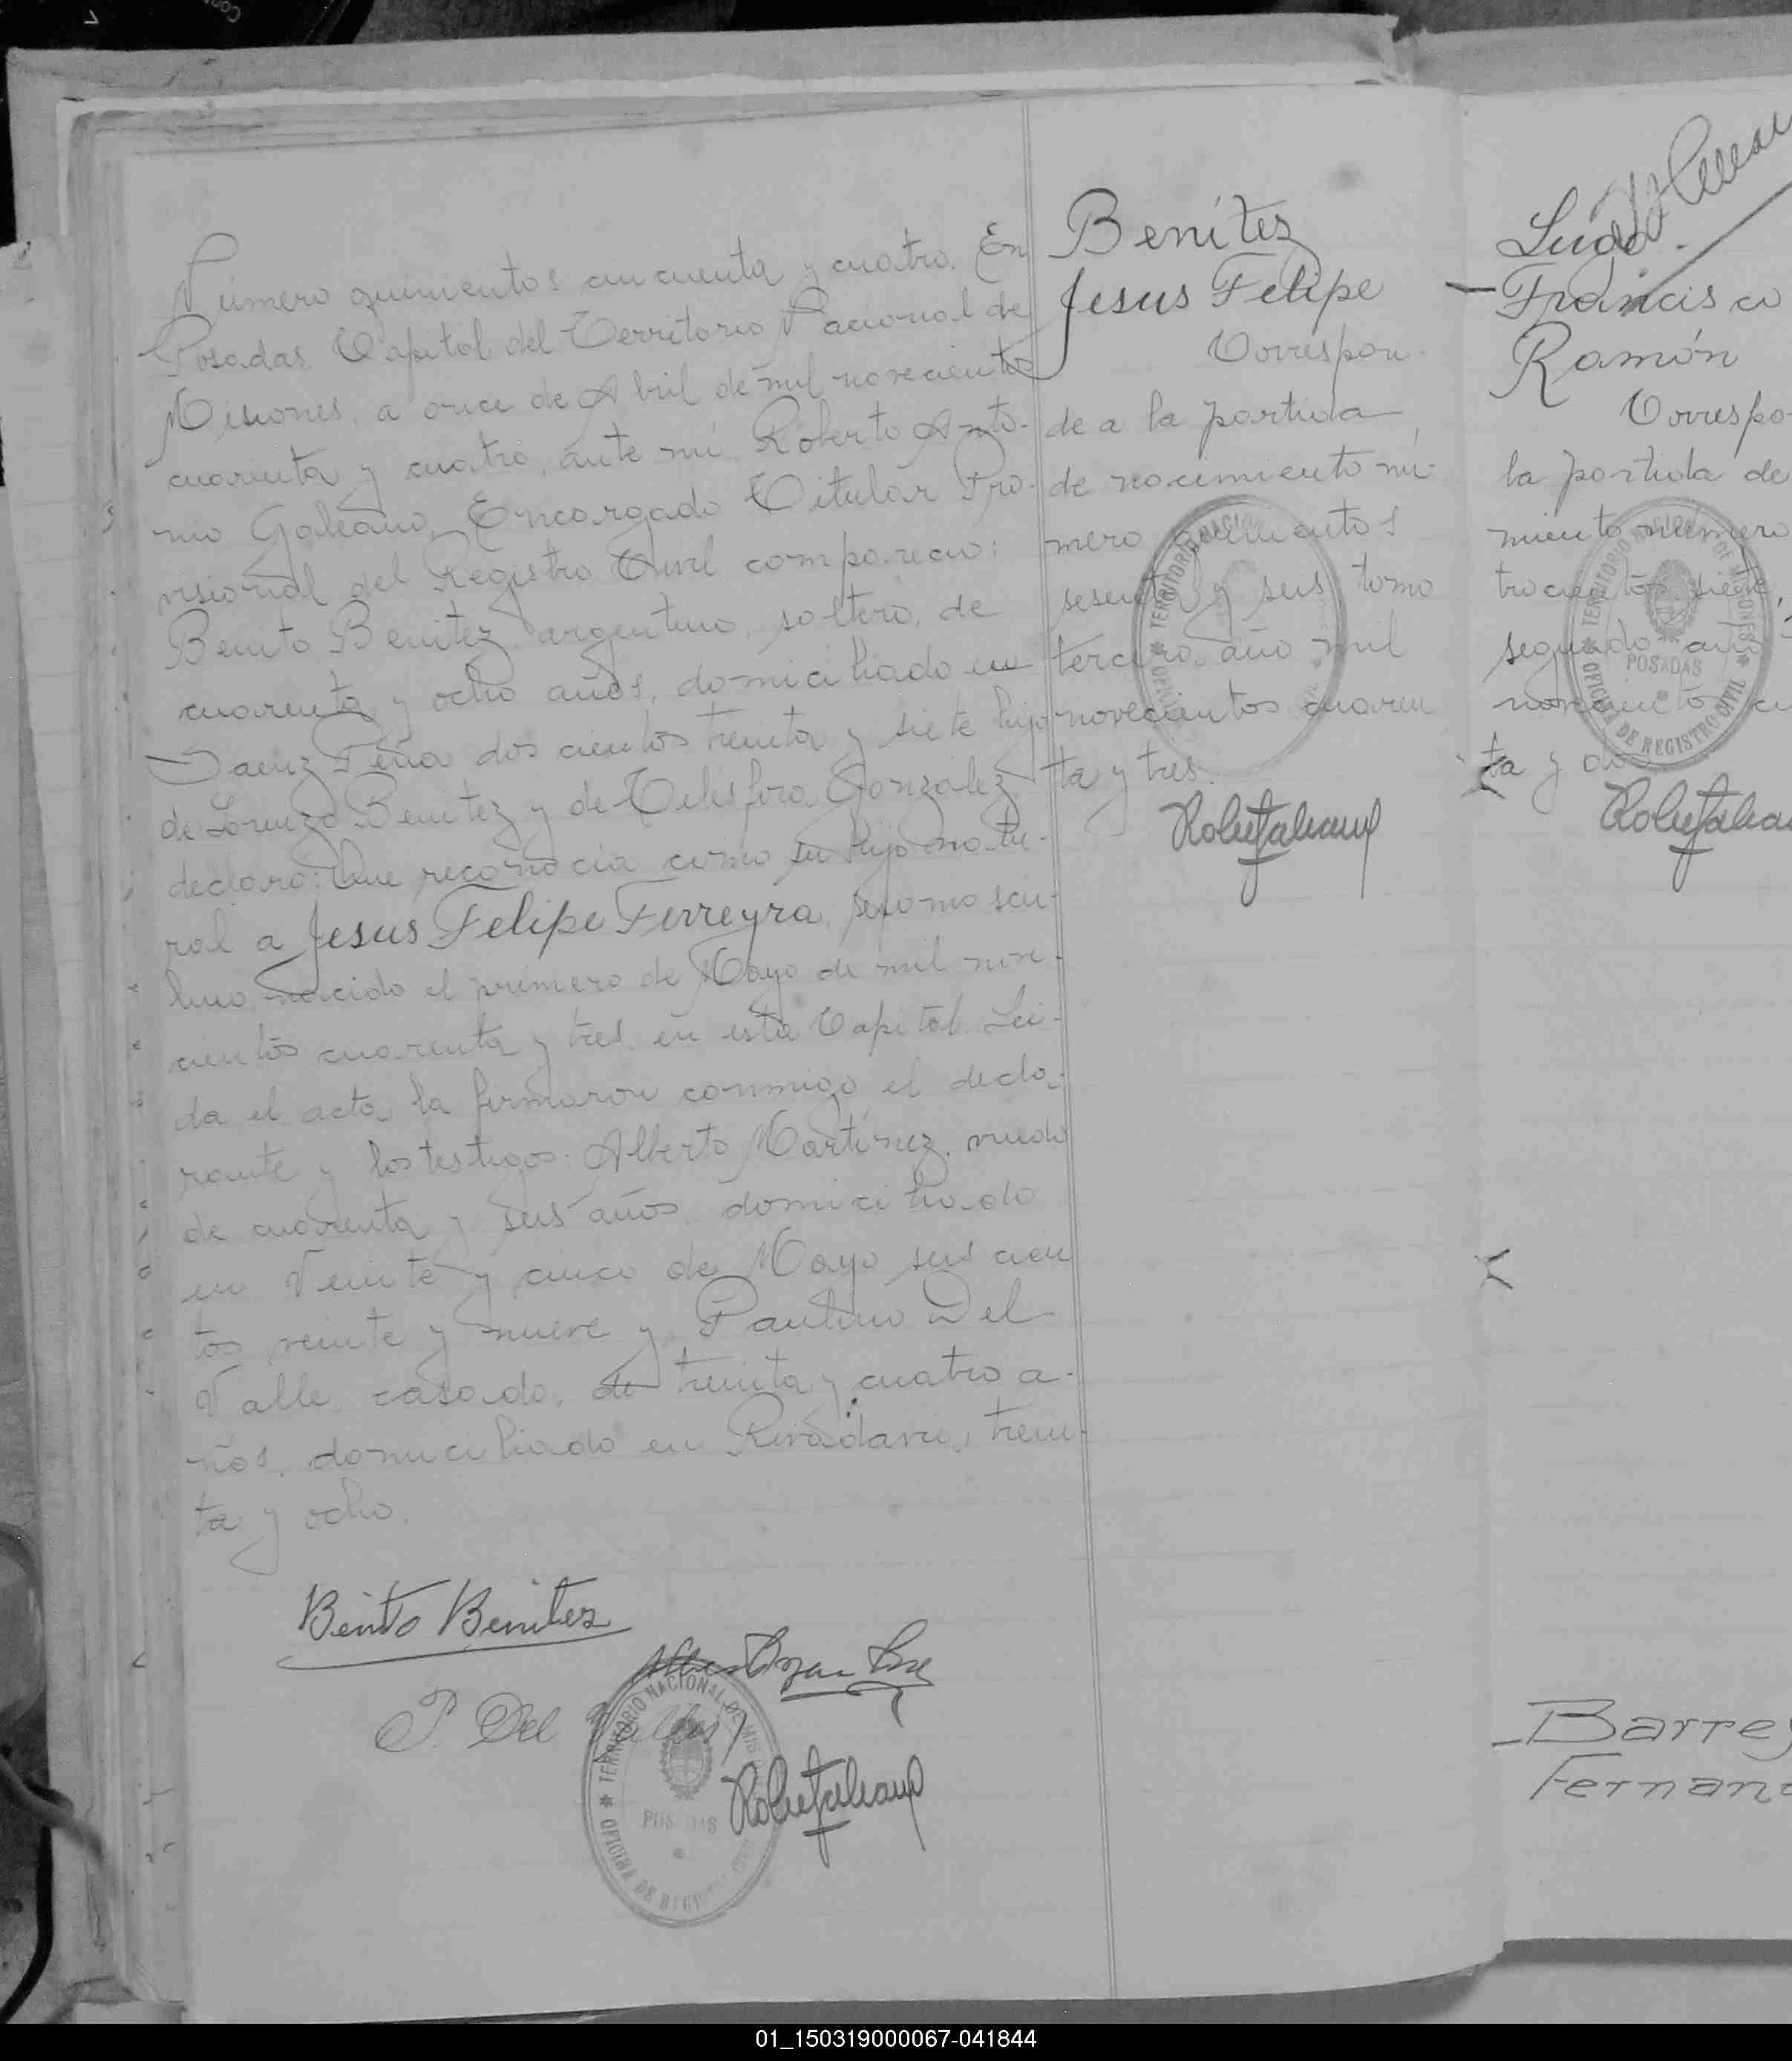 Número quinientos cincuenta y cuatro. En
Posadas, Capital del Territorio Nacional de
Misiones, a once de Abril de mil novecientos
cuarenta y cuatro, ante mí Roberto Anto-
nio Galeano, Encargado Titular Pro-
visional del Registro Civil compareció:
Benito Benitez argentino, soltero, de
cuarenta y ocho años, domiciliado en
Saenz Peña dos cientos treinta y siete hijo
de Lorenzo Benitez y de Telésfora González
declaró: Que reconocía como su hijo natu-
ral a Jesus Felipe Ferreyra, sexo mascu-
lino, nacido el primero de Mayo de mil nove-
cientos cuarenta y tres en esta Capital. Leí-
da el acta la firmaron conmigo el decla-
rante y los testigos: Alberto Martínez, viudo
de cuarenta y seis años, domiciliado
en Veinte y cinco de Mayo seis cien
tos veinte y nueve y Paulino Del
Valle, casado, de treinta y cuatro a-
ños, domiciliado en Rivadavia, trein-
ta y ocho.
Benito Benitez
P. Del Valle
TERRITORIO NACIONAL DE MIS
POSADAS
Benítez
Jesus Felipe
Correspon-
de a la partida
de nacimiento nú-
mero quinientos
sesenta y seis tomo
tercero año mil
novecientos cuaren
ta y tres.
TERRITORIO NACIO
Francisco
Ramón
Correspo
la partida de
miento número
trocientos siete,
segundo año
ta y do
TERRITORIO NACIONAL DE MISIONES
POSADAS
OFICINA DE REGISTRO CIVIL
Barrey
Fernand
01_150319000067-041844